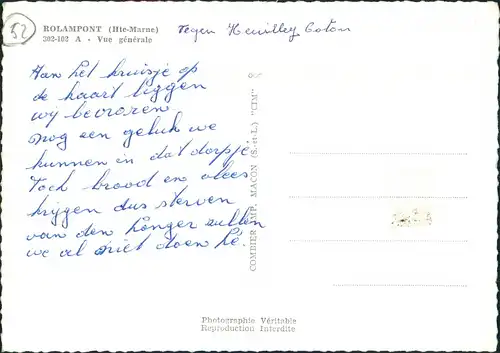 52
ROLAMPONT (Hte-Marne)
302-102 A - Vue générale
tegen Heuilley Coton
Aan het kruisje op
de kaart liggen
wy bevroren
nog een geluk we
kunnen in dat dorpje
Toch brood en vlees
krijgen dus sterven
van den honger zullen
we al niet doen hé.
COMBIER IMP. MACON (S.-et-L.) "CIM"
Photographie Véritable
Reproduction Interdite